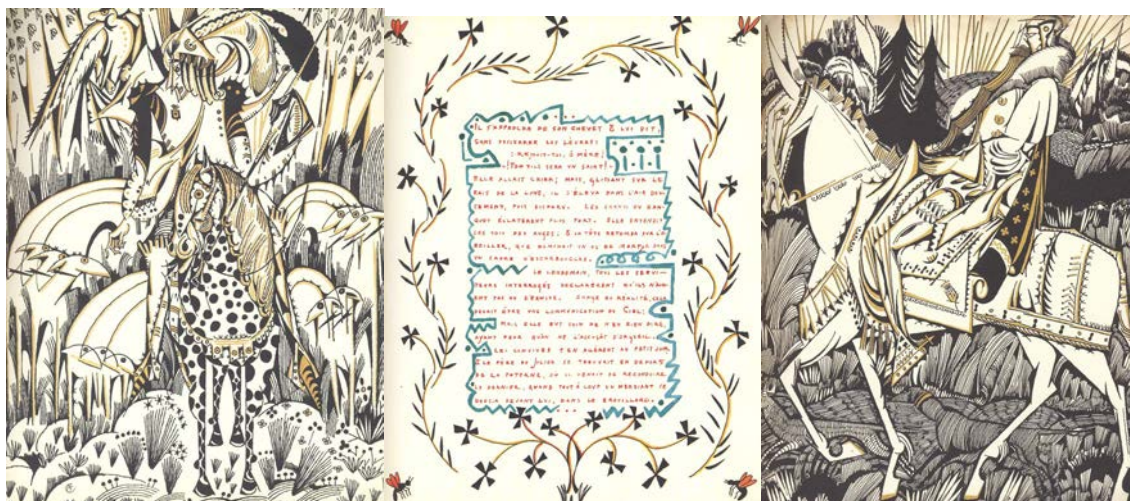 IL S'APPROCHA DE SON CHEVET & LUI DIT,
SANS DESSERRER LES LÈVRES:
: RÉJOUIS-TOI, Ô MÈRE!
! TON FILS SERA UN SAINT!
ELLE ALLAIT CRIER; MAIS, GLISSANT SUR LE
RAIS DE LA LUNE, IL S'ÉLEVA DANS L'AIR DOU-
CEMENT, PUIS DISPARUT. LES CHANTS DU BAN-
QUET ÉCLATÈRENT PLUS FORT. ELLE ENTENDIT
LES VOIX DES ANGES; & SA TÊTE RETOMBA SUR L'O-
REILLER, QUE DOMINAIT UN OS DE MARTYR DANS
UN CADRE D'ESCARBOUCLES.
LE LENDEMAIN, TOUS LES SERVI-
TEURS INTERROGÉS DÉCLARÈRENT QU'ILS N'AVAI-
ENT PAS VU D'ERMITE. SONGE OU RÉALITÉ, CELA
DEVAIT ÊTRE UNE COMMUNICATION DU CIEL;
MAIS ELLE EUT SOIN DE N'EN RIEN DIRE,
AYANT PEUR QU'ON NE L'ACCUSÂT D'ORGUEIL.
LES CONVIVES S'EN ALLÈRENT AU PETIT JOUR;
& LE PÈRE DE JULIEN SE TROUVAIT EN DEHORS
DE LA POTERNE, OÙ IL VENAIT DE RECONDUIRE
LE DERNIER, QUAND TOUT À COUP UN MENDIANT SE
DRESSA DEVANT LUI, DANS LE BROUILLARD.